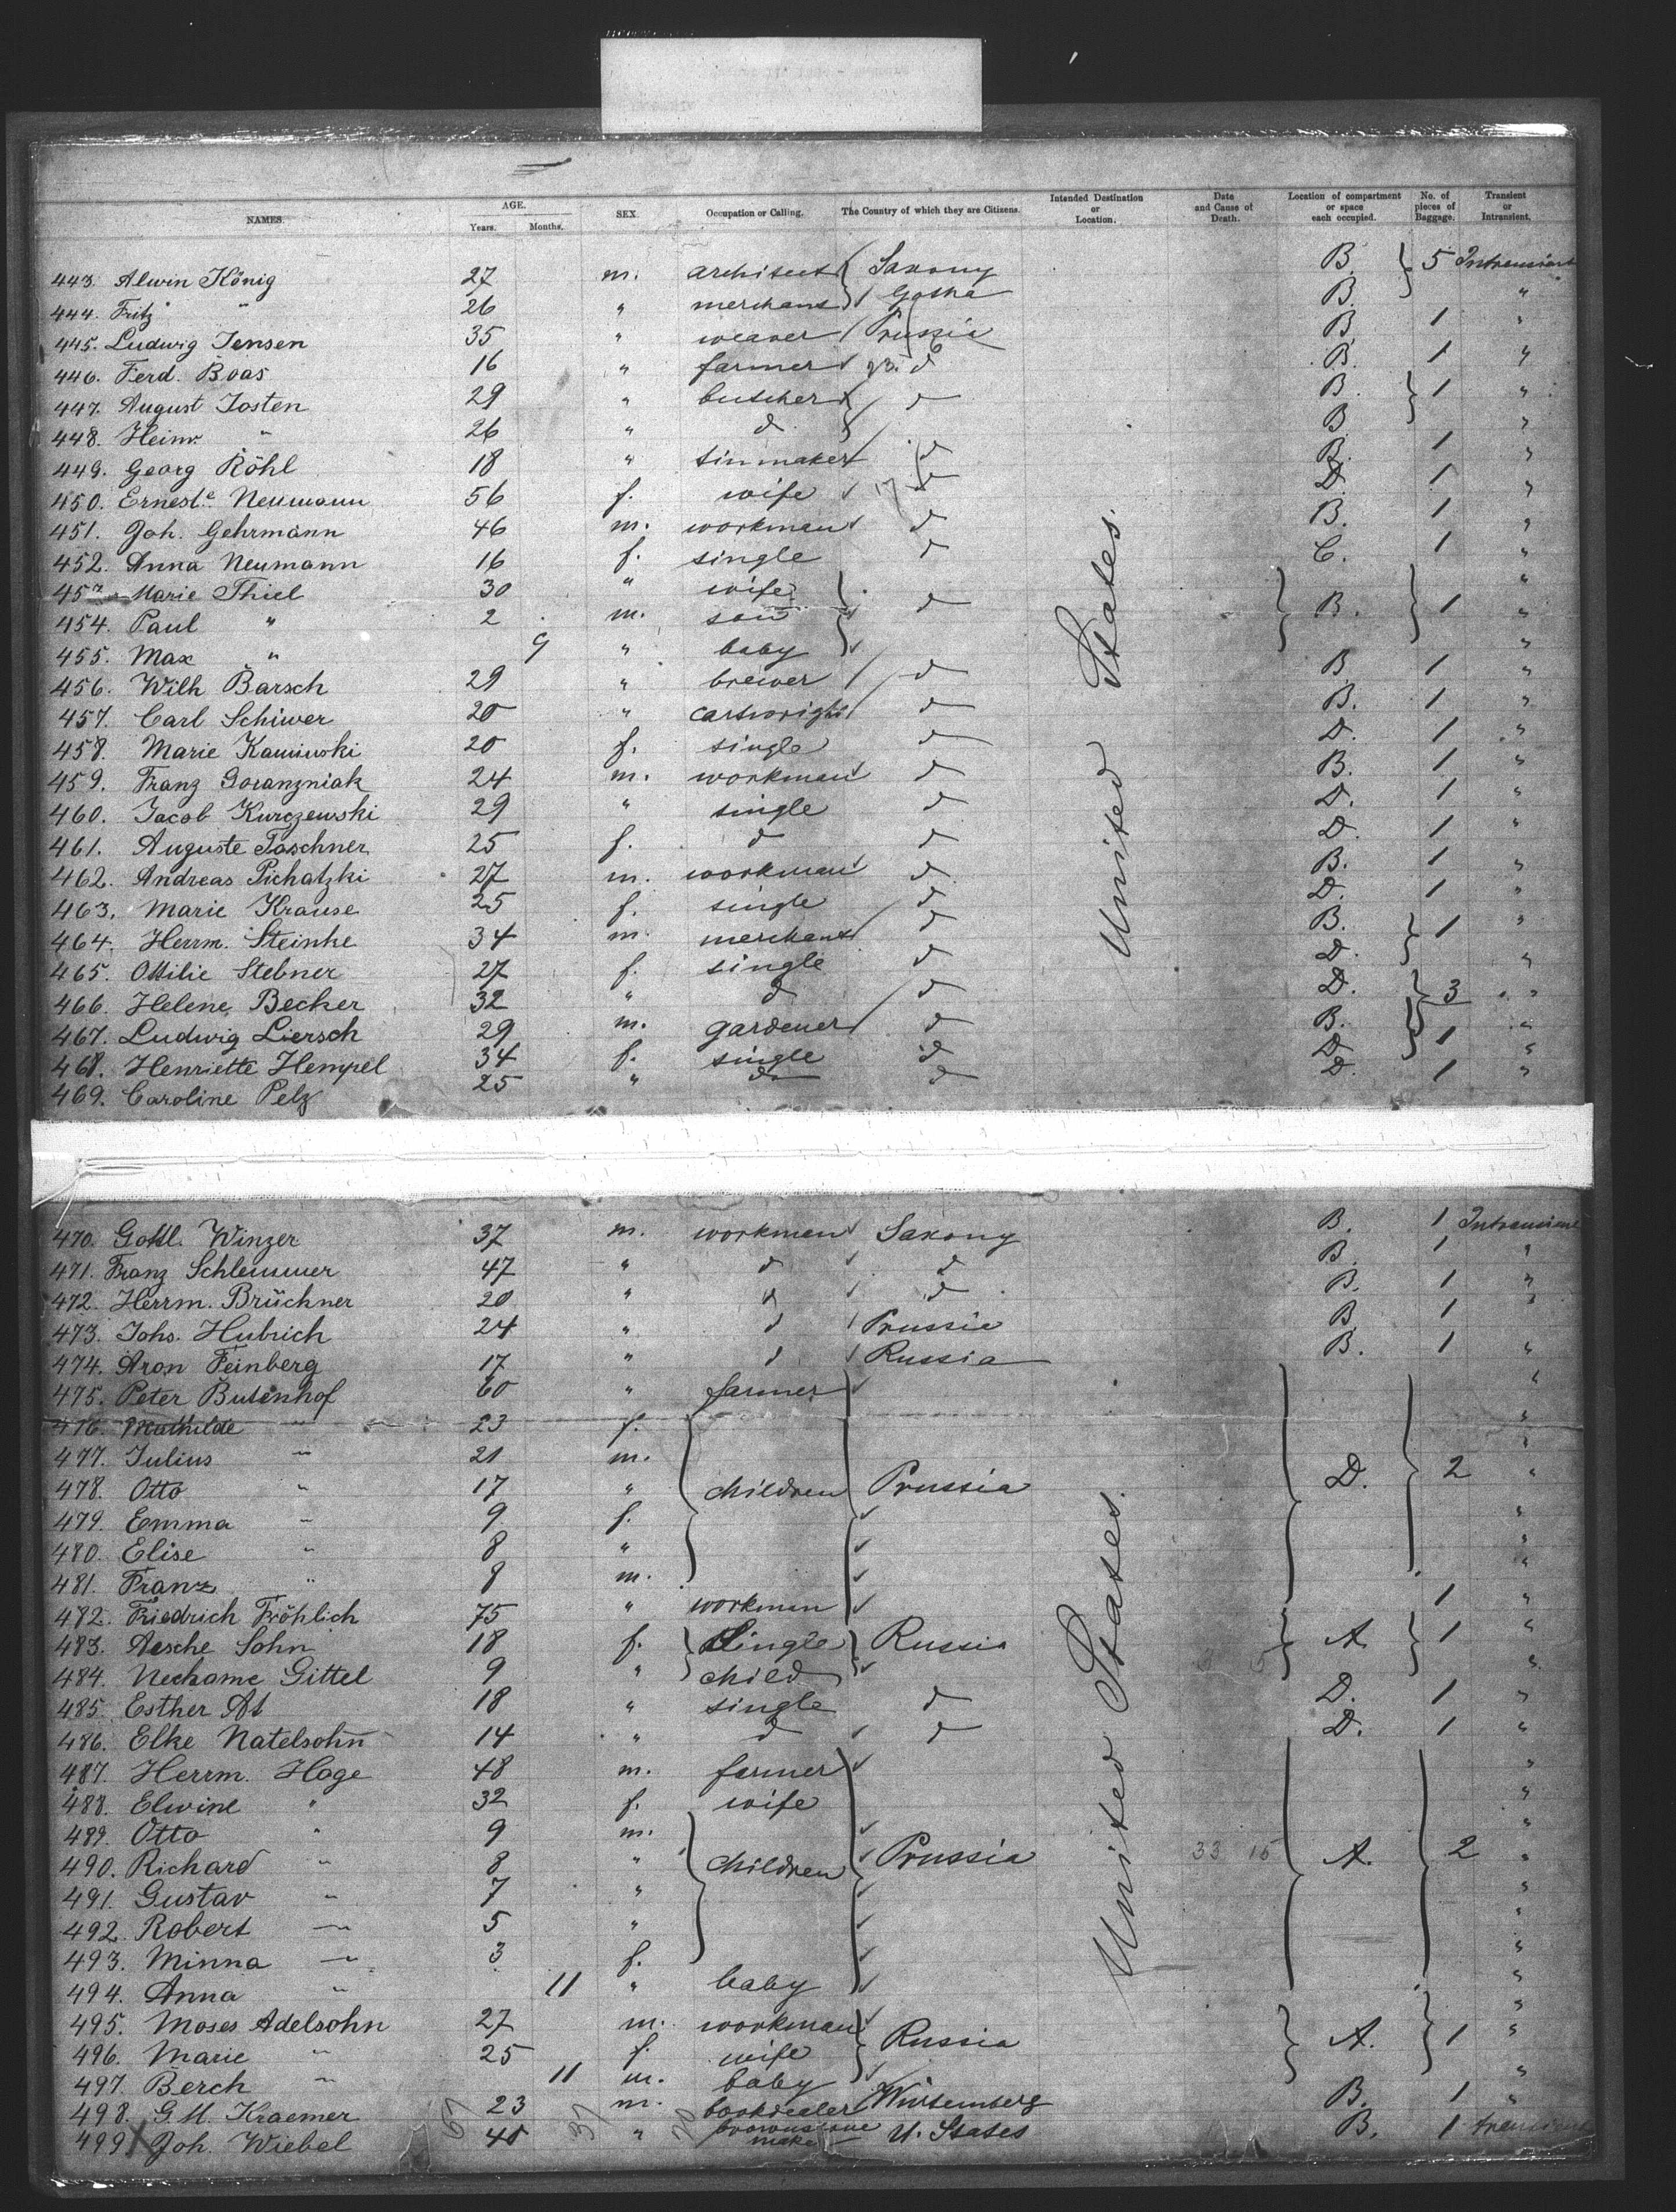 NAMES. AGE. Years. Months. SEX. Occupation or Calling. The Country of which they are Citizens. Intended Destination or Location. Date and Cause of Death. Location of compartment or space each occupied. No. of pieces of Baggage. Transient or Intransient.
443. Alwin König 27 m. architect Saxony B. 5 Intransient
444. Fritz " 26 " merchant Gotha B. "
445. Ludwig Jensen 35 " weaver Prussia B 1 "
446. Ferd. Boas 16 " farmer d B. 1 "
447. August Josten 29 " butcher d B 1 "
448. Heinr. " 26 " d B "
449. Georg Röhl 18 " tinmaker d B. 1 "
450. Erneste Neumann 56 f. wife d D. 1 "
451. Joh. Gehrmann 46 m. workman d B. 1 "
452. Anna Neumann 16 f. single d C. 1 "
453. Marie Thiel 30 " wife "
454. Paul " 2 m. son d B. 1 "
455. Max " 9 " baby "
456. Wilh Barsch 29 " brewer d B. 1 "
457. Carl Schiwer 20 " cartwright d B. 1 "
458. Marie Kaminski 20 f. single d D. 1 "
459. Franz Goranzniak 24 m. workman d B. 1 "
460. Jacob Kurczewski 29 " single d D. 1 "
461. Auguste Taschner 25 f. d d D. 1 "
462. Andreas Pichatzki 27 m. workman d B. 1 "
463. Marie Krause 25 f. single d D. 1 "
464. Herrm. Steinke 34 m. merchant d B. 1 "
465. Ottilie Stebner 27 f. single d D. "
466. Helene Becker 32 " d d D. 3 "
467. Ludwig Liersch 29 m. gardener d B. "
468. Henriette Hempel 34 f. single d D. 1 "
469. Caroline Pelz 25 " do d D. 1 "
United States.
470. Gottl. Winzer 37 m. workmen Saxony B. 1 Intransient
471. Franz Schlemmer 47 " d d B. 1 "
472. Herrm. Brückner 20 " d d B. 1 "
473. Johs. Hubrich 24 " d Prussia B. 1
474. Aron Feinberg 17 " d Russia B. 1 "
475. Peter Butenhof 60 " farmer "
476. Mathilde " 23 f. "
477. Julius " 21 m. "
478. Otto " 17 " children Prussia D. 2 "
479. Emma " 9 f. "
480. Elise " 8 " "
481. Franz " 8 m. "
482. Friedrich Fröhlich 75 " workman 1 "
483. Aesche Sohn 18 f. Single Russia A. 1 "
484. Nechame Gittel 9 " child "
485. Esther At 18 " single d D. 1 "
486. Elke Natelsohn 14 " d d D. 1 "
487. Herrm. Hoge 48 m. farmer "
488. Elwine " 32 f. wife "
489. Otto " 9 m. "
490. Richard " 8 " children Prussia 33 15 A. 2 "
491. Gustav " 7 " "
492. Robert " 5 " "
493. Minna " 3 f. "
494. Anna " 11 " baby "
495. Moses Adelsohn 27 m. workman "
496. Marie " 25 f. wife Russia A. 1 "
497. Berch " 11 m. baby "
498. G. M. Kraemer 23 m. bookdealer Würtemberg B. 1 "
499. Joh. Wiebel 40 " maker U. States B. 1 transient
United States.